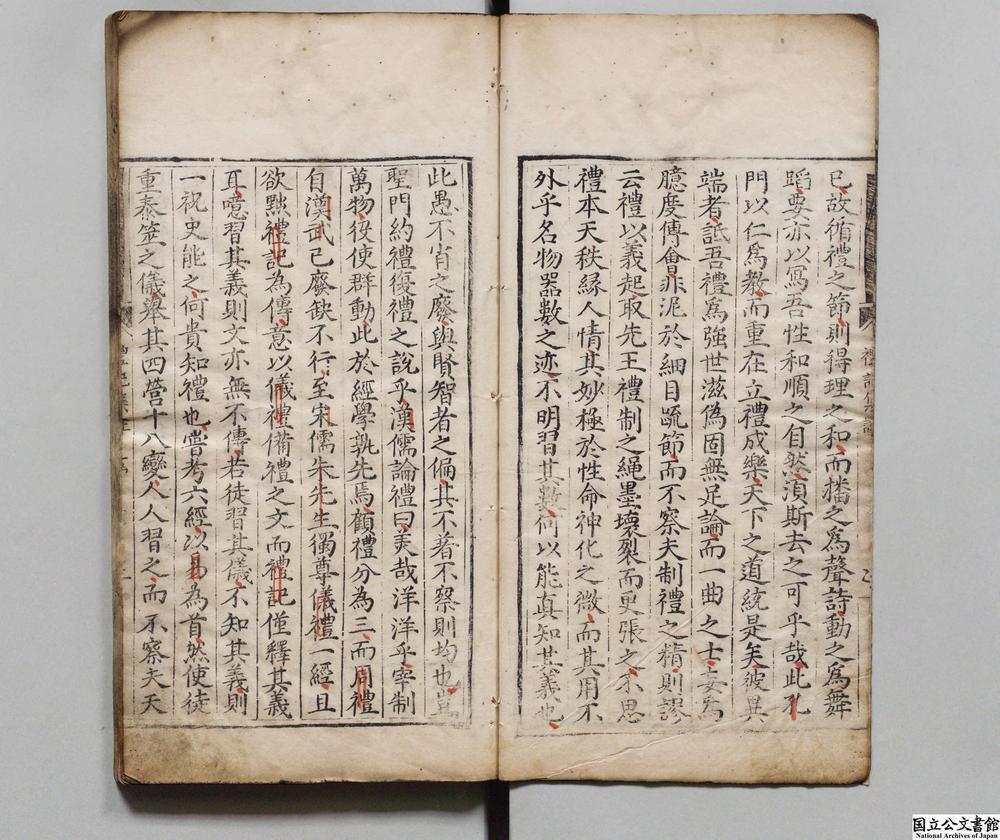 已故循禮之節則得理之和而播之爲聲詩動之爲舞
蹈要亦以寫吾性和順之自然湏斯去之可乎哉此孔
門以仁爲教而重在立禮成樂天下之道統是矣彼異
端者詆吾禮爲強世滋偽固無足論而一曲之士妄爲
臆度傅會非泥於細目踈節而不察夫制禮之精則謬
云禮以義起取先王禮制之繩墨壞裂而更張之不思
禮本天秩緣人情其妙極於性命神化之微而其用不
外乎名物器數之迹不明習其數何以能真知其義也
此愚不肖之廢與賢智者之偏其不著不察則均也豈
聖門約禮復禮之說乎漢儒論禮曰美哉洋洋乎宰制
萬物役使群動此於經學孰先焉顧禮分為三而周禮
自漢武已廢缺不行至宋儒朱先生獨尊儀禮一經且
欲㸃禮記為傳意以儀禮備禮之文而禮記僅釋其義
耳噫習其義則文亦無不傳若徒習其儀不知其義則
一祝史能之何貴知禮也嘗考六經以易為首然使徒
重泰筮之儀舉其四營十八變人人習之而不察夫天
国立公文書館
National Archives of Japan